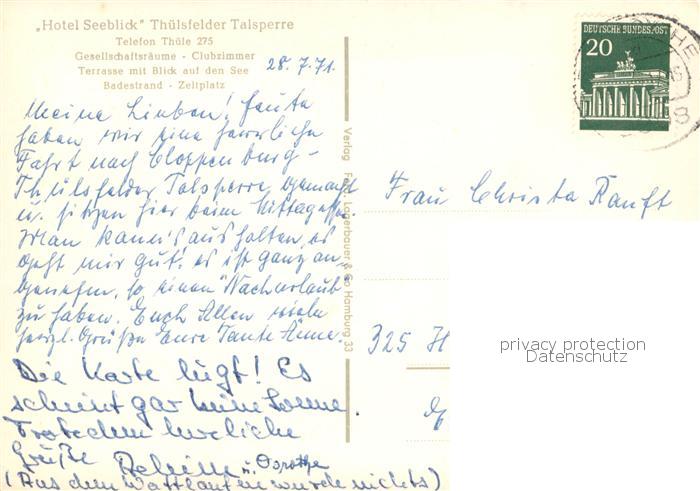 „Hotel Seeblick" Thülsfelder Talsperre
Telefon Thüle 275
Gesellschaftsräume - Clubzimmer
Terrasse mit Blick auf den See
Badestrand - Zeltplatz
28.7.71.
Meine Lieben! Heute
haben wir eine herrliche
Fahrt nach Cloppenburg -
Thülsfelder Talsperre gemacht
u. sitzen hier beim Mittagessen.
Man kann's aushalten, es
geht mir gut! es ist ganz an-
genehm, so einen "Nachurlaub"
zu haben. Euch Allen viele
herzl. Grüße Eure Tante Änne.
Die Karte lügt! Es
scheint gar keine Sonne.
Trotzdem herzliche
Grüße u.
(Aus dem Wattlaufen wurde nichts)
Verlag Lagerbauer & Co Hamburg 33
DEUTSCHE BUNDESPOST
20
Frau Christa Ranft
325 H
privacy protection
Datenschutz